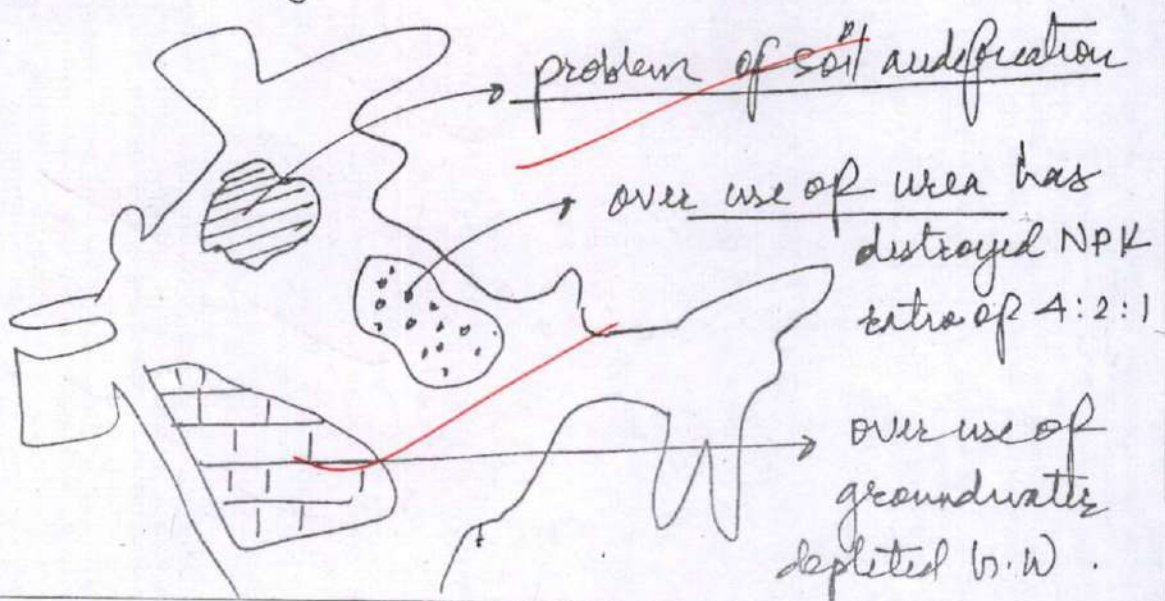 problem of soil audefication
over use of urea has
distroyed NPK
ratio of 4:2:1
over use of
groundwater
depleted G.W.